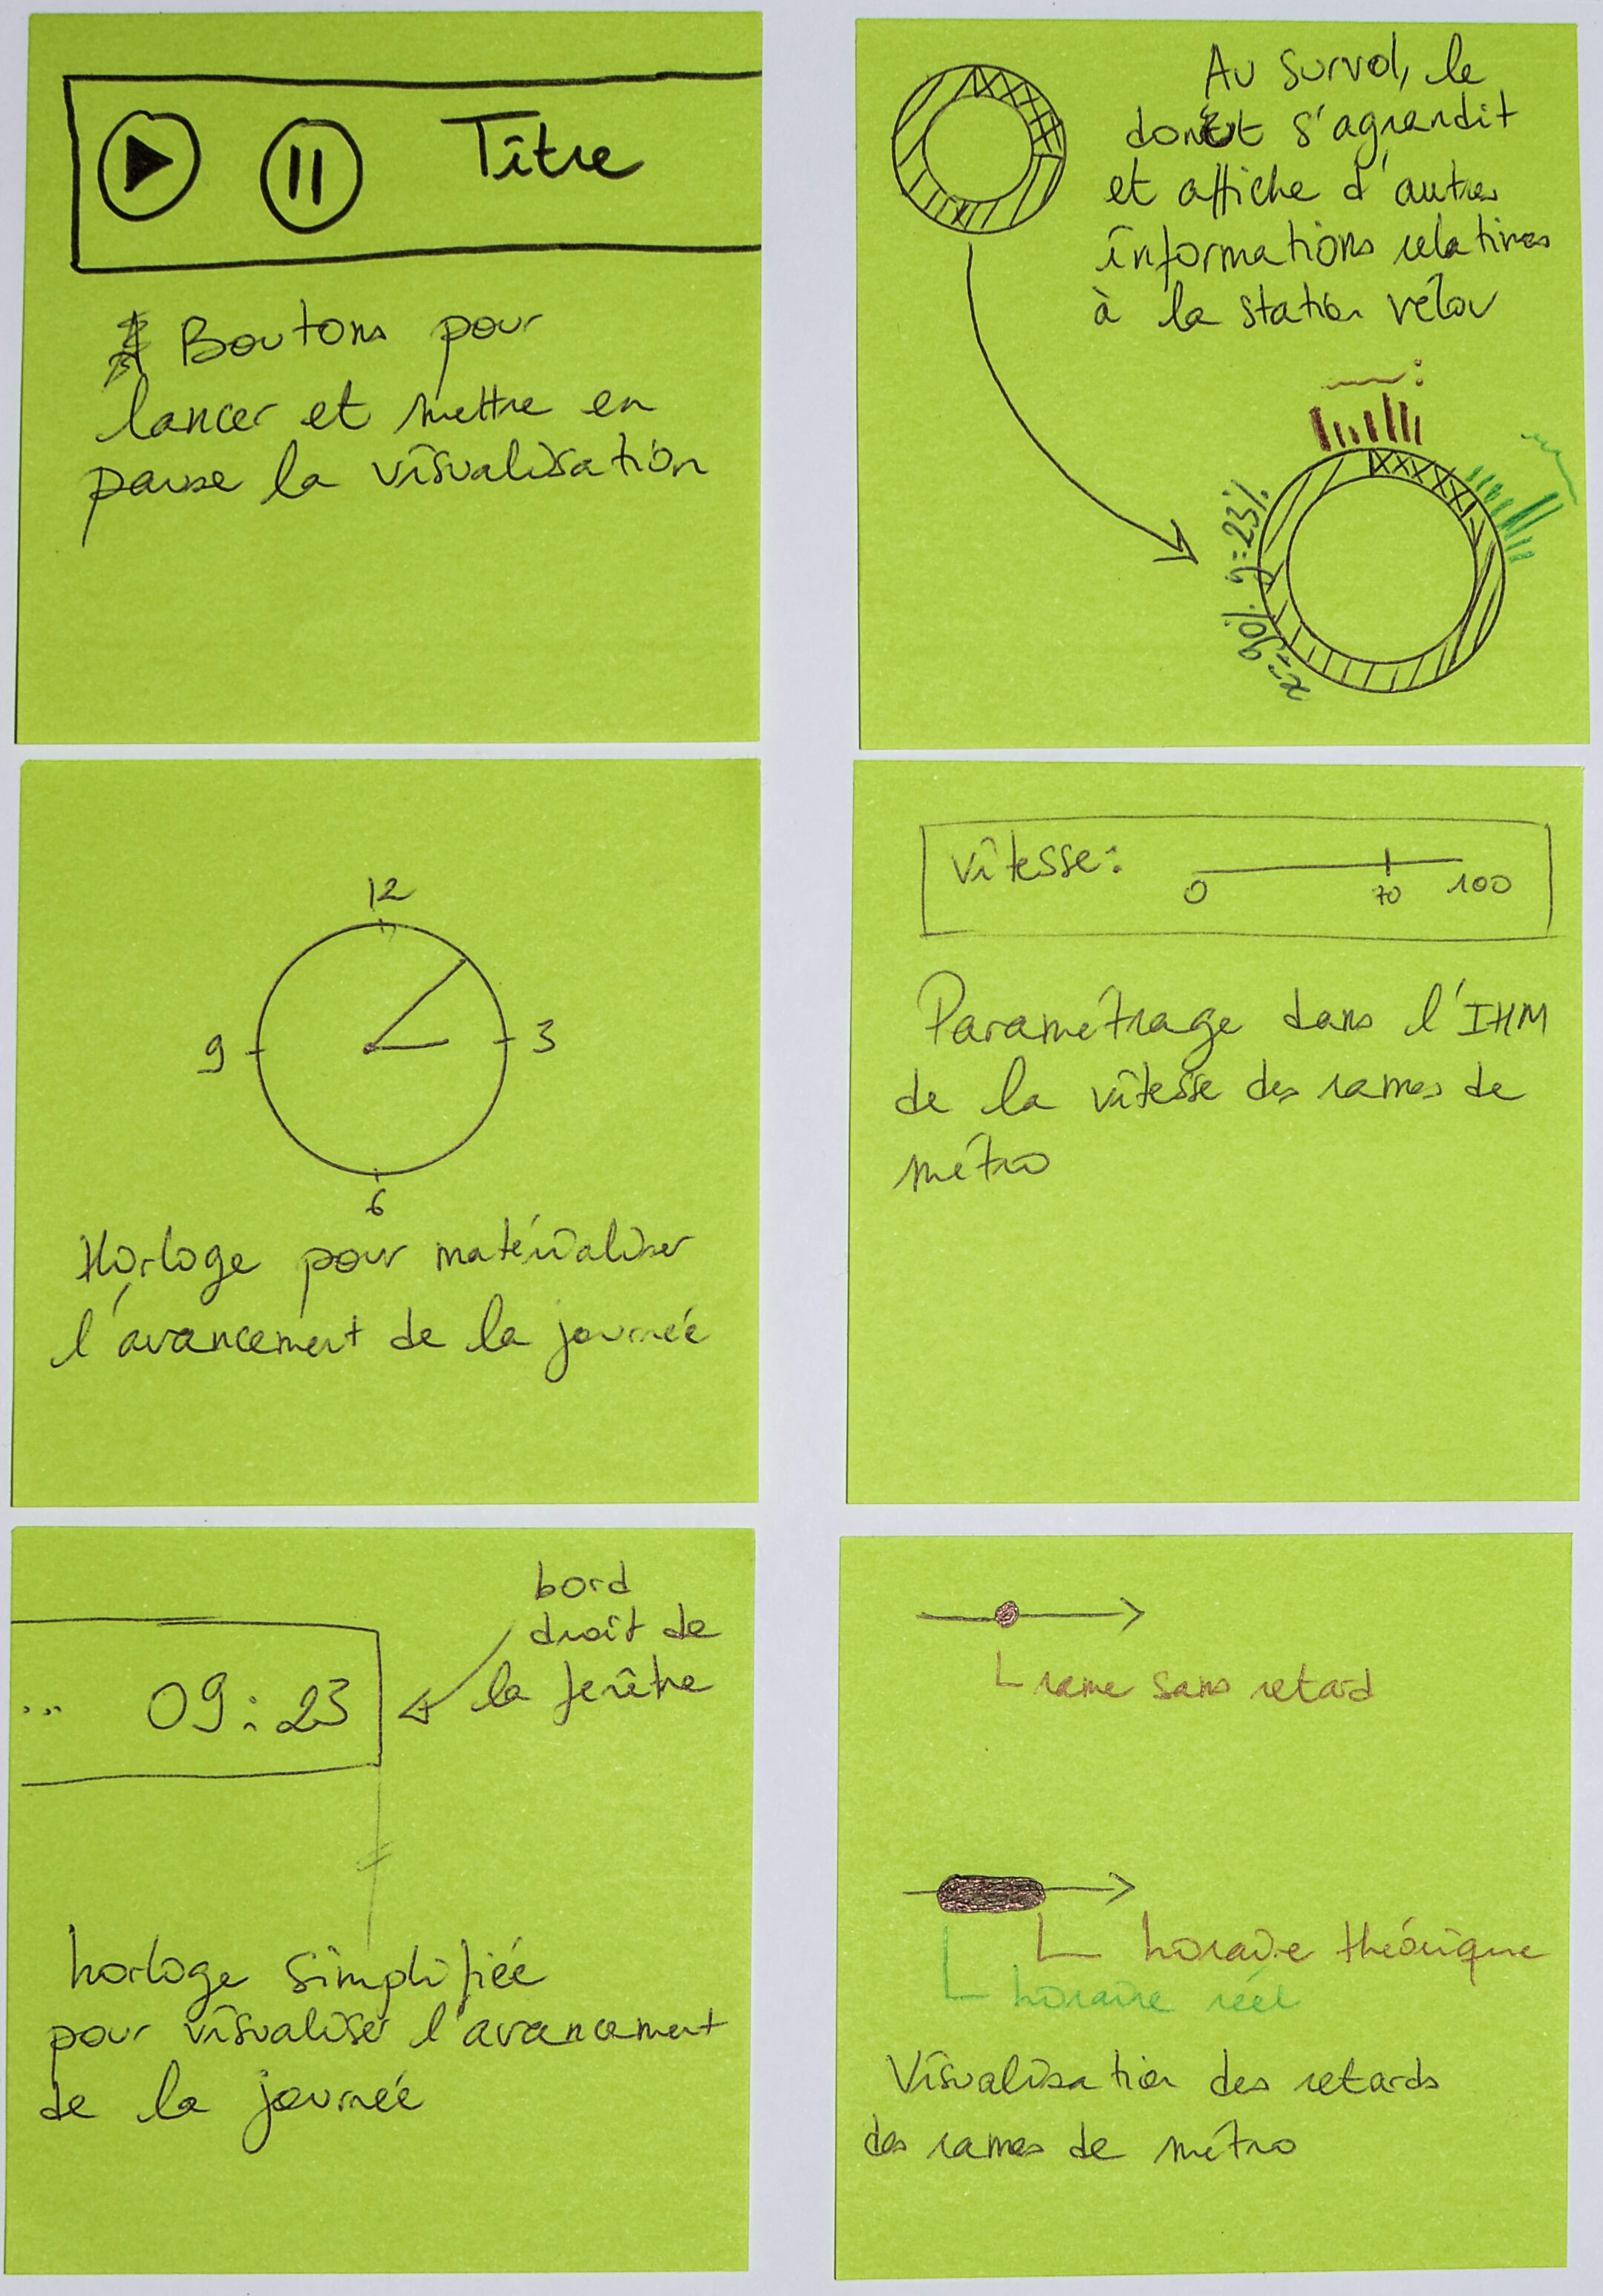 Titre
Boutons pour
lancer et mettre en
pause la visualisation
Au survol, le
donut s'agrandit
et affiche d'autres
informations relatives
à la station vélov
y=23%
x=90%
12
9
3
6
Horloge pour matérialiser
l'avancement de la journée
vitesse:
0
70
100
Paramétrage dans l'IHM
de la vitesse des rames de
métro
bord
droit de
la fenêtre
... 09:23
horloge simplifiée
pour visualiser l'avancement
de la journée
rame sans retard
horaire théorique
horaire réel
Visualisation des retards
des rames de métro